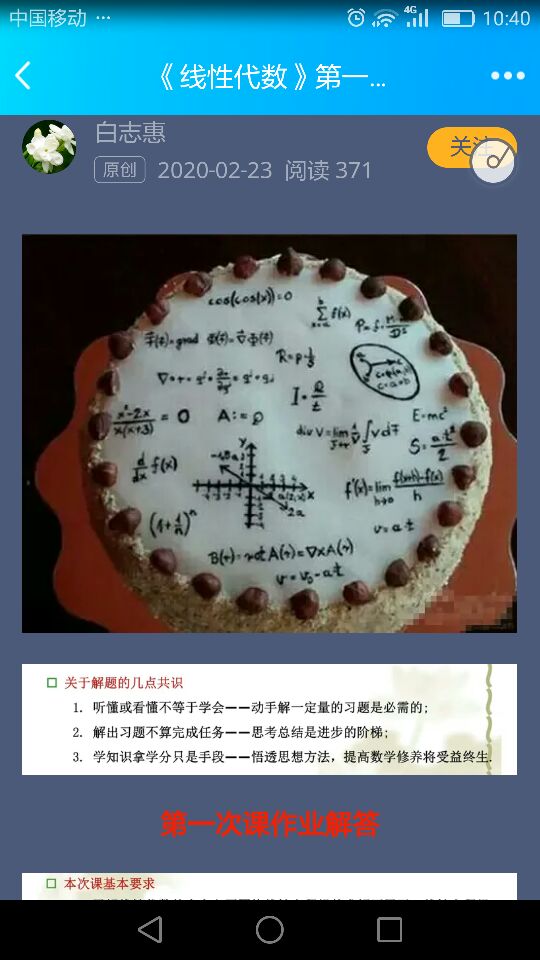 中国移动 ··· 4G 10:40
《线性代数》第一...
白志惠
关注
原创 2020-02-23 阅读 371
cos(cos(x))=0
R=ρ
I=Q/t
(x²-2x)/(x(x+3)) = 0
E=mc²
d/dx f(x)
f'(x)=lim h→0 (f(x+h)-f(x))/h
(1+1/n)ⁿ
v=at
B(r)=rot A(r)=∇×A(r)
v=v₀-at
□ 关于解题的几点共识
1. 听懂或看懂不等于学会——动手解一定量的习题是必需的;
2. 解出习题不算完成任务——思考总结是进步的阶梯;
3. 学知识拿学分只是手段——悟透思想方法，提高数学修养将受益终生.
第一次课作业解答
□ 本次课基本要求